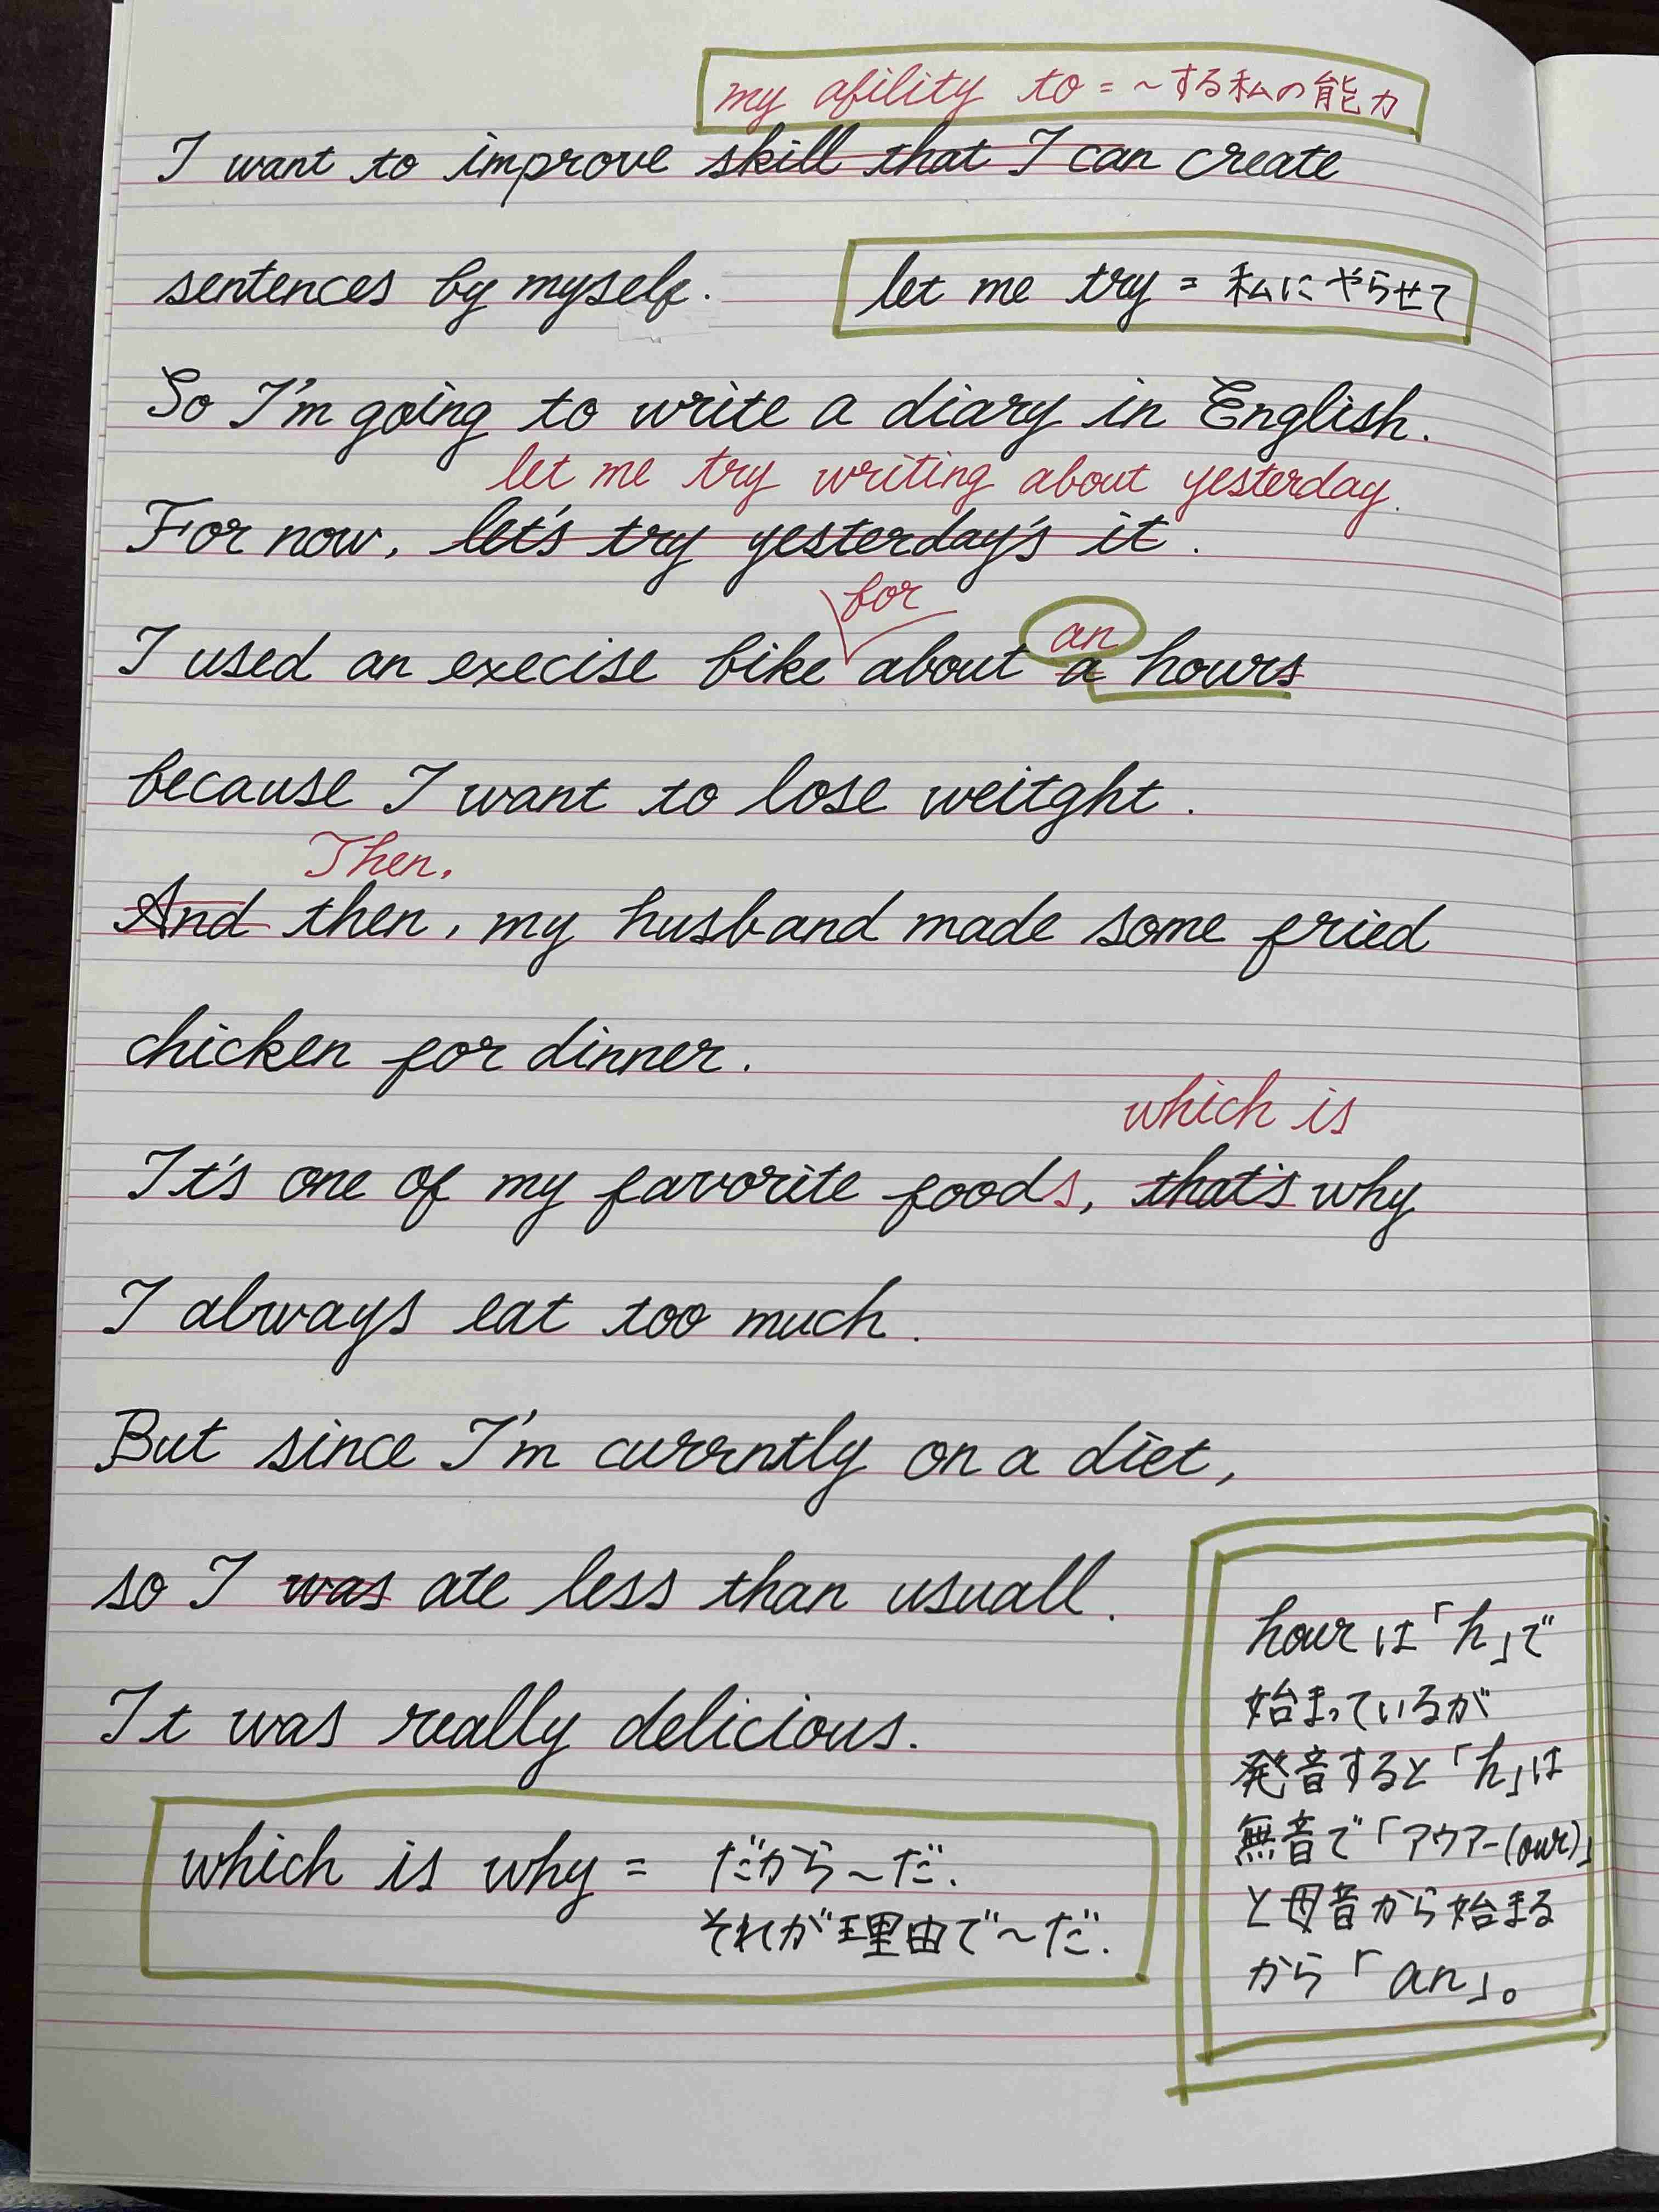 my ability to = ~する私の能力
I want to improve skill that I can create
sentences by myself.
let me try = 私にやらせて
So I'm going to write a diary in English.
let me try writing about yesterday.
For now, let's try yesterday's it.
for
an
I used an execise bike about a hours
because I want to lose weitght.
Then,
And then, my husband made some fried
chicken for dinner.
which is
It's one of my favorite foods, that's why
I always eat too much.
But since I'm currntly on a diet,
so I was ate less than usuall.
It was really delicious.
which is why = だから~だ.
それが理由で~だ.
hourは「h」で
始まっているが
発音すると「h」は
無音で「アウアー(our)」
と母音から始まる
から「an」。